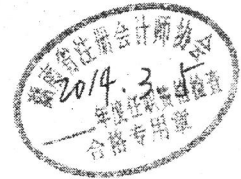 南省注册会计师协会
2014.3.5
年度任职资格检查
合格专用章